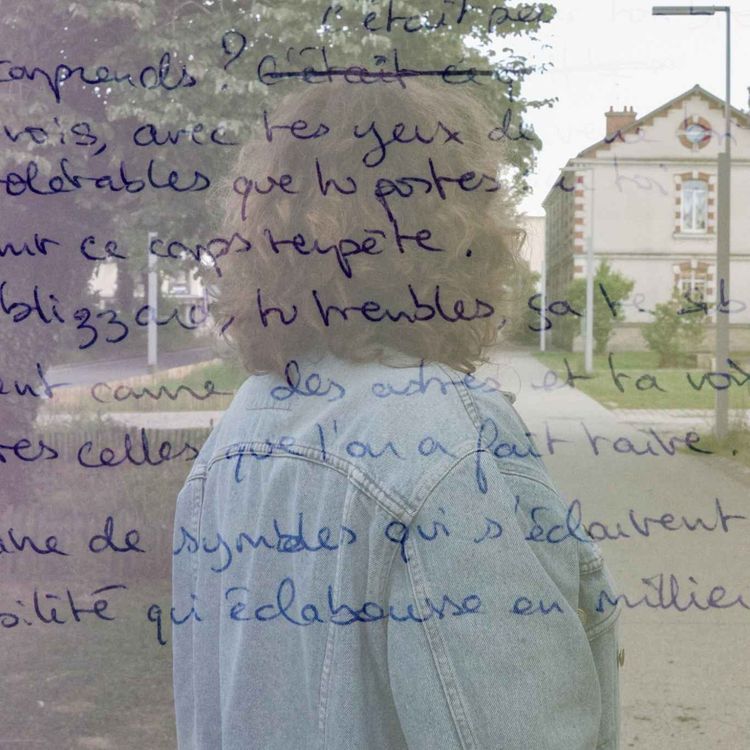 c'était pe
comprends? c'était ce q
vois, avec tes yeux de
olérables que tu portes en toi
ur ce corps tempête.
blizzard, tu trembles, ça te
ent comme des astres et ta voix
res celles que l'on a fait taire.
ane de symboles qui s'éclairent
bilité qui éclabousse en millier